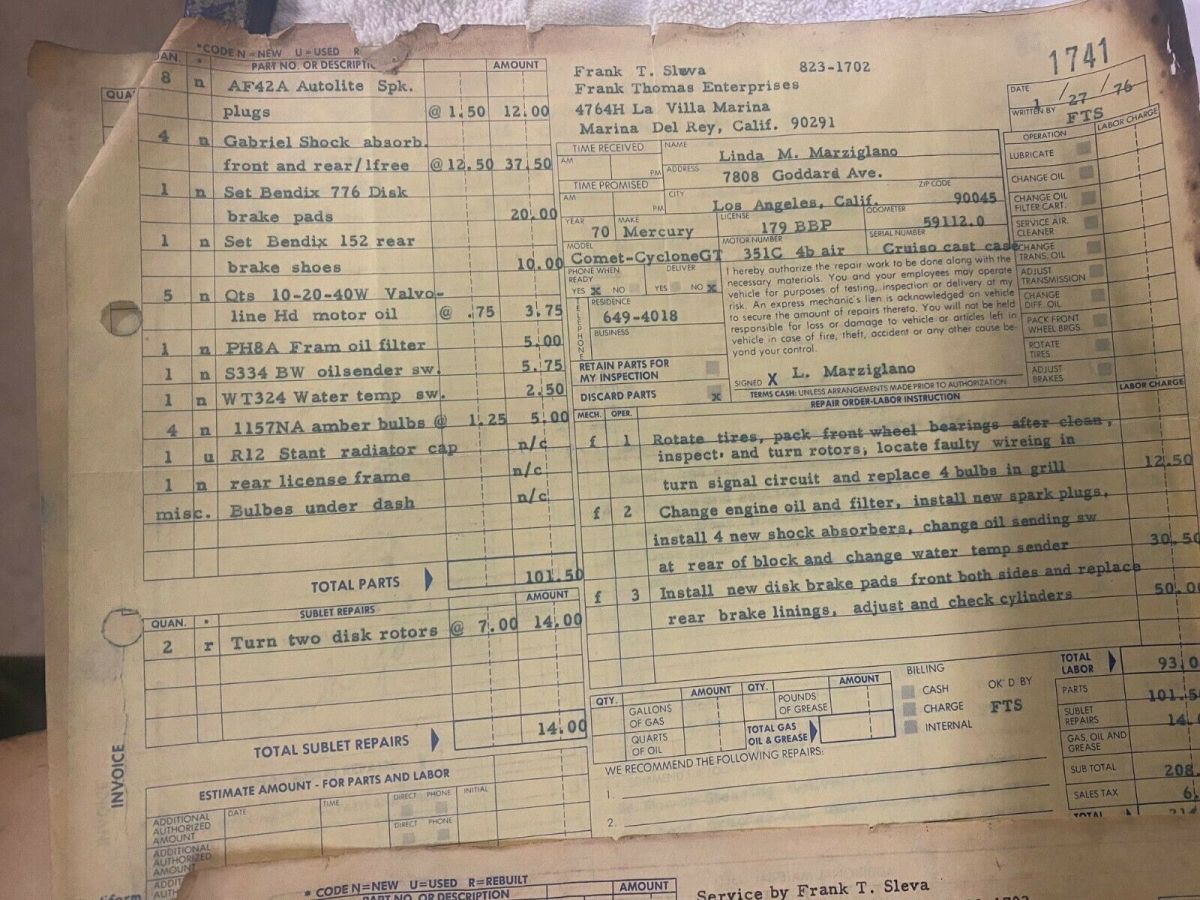 *CODE N=NEW U=USED R
QUAN. * PART NO. OR DESCRIPTION AMOUNT
8 n AF42A Autolite Spk.
plugs @ 1.50 12.00
4 n Gabriel Shock absorb.
front and rear/1free @ 12.50 37.50
1 n Set Bendix 776 Disk
brake pads 20.00
1 n Set Bendix 152 rear
brake shoes 10.00
5 n Qts 10-20-40W Valvo-
line Hd motor oil @ .75 3.75
1 n PH8A Fram oil filter 5.00
1 n S334 BW oilsender sw. 5.75
1 n WT324 Water temp sw. 2.50
4 n 1157NA amber bulbs @ 1.25 5.00
1 u R12 Stant radiator cap n/c
1 n rear license frame n/c
misc. Bulbes under dash n/c
TOTAL PARTS 101.50
QUAN. * SUBLET REPAIRS AMOUNT
2 r Turn two disk rotors @ 7.00 14.00
TOTAL SUBLET REPAIRS 14.00
ESTIMATE AMOUNT - FOR PARTS AND LABOR
ADDITIONAL AUTHORIZED AMOUNT DATE TIME DIRECT PHONE INITIAL
DIRECT PHONE
ADDITIONAL AUTHORIZED AMOUNT
INVOICE
QUA
Frank T. Sleva 823-1702
Frank Thomas Enterprises
4764H La Villa Marina
Marina Del Rey, Calif. 90291
1741
DATE 1/27/76
WRITTEN BY FTS
TIME RECEIVED
AM
PM
NAME Linda M. Marziglano
ADDRESS 7808 Goddard Ave.
TIME PROMISED
AM
PM
CITY Los Angeles, Calif. ZIP CODE 90045
YEAR 70 MAKE Mercury LICENSE 179 BBP ODOMETER 59112.0
MODEL Comet-CycloneGT MOTOR NUMBER 351C 4b air SERIAL NUMBER Cruiso cast case
PHONE WHEN READY YES x NO
DELIVER YES NO x
TELEPHONE
RESIDENCE
649-4018
BUSINESS
RETAIN PARTS FOR
MY INSPECTION
DISCARD PARTS x
I hereby authorize the repair work to be done along with the
necessary materials. You and your employees may operate
vehicle for purposes of testing, inspection or delivery at my
risk. An express mechanic's lien is acknowledged on vehicle
to secure the amount of repairs thereto. You will not be held
responsible for loss or damage to vehicle or articles left in
vehicle in case of fire, theft, accident or any other cause be-
yond your control.
SIGNED X L. Marziglano
TERMS CASH: UNLESS ARRANGEMENTS MADE PRIOR TO AUTHORIZATION
OPERATION LABOR CHARGE
LUBRICATE
CHANGE OIL
CHANGE OIL FILTER CART.
SERVICE AIR CLEANER
CHANGE TRANS. OIL
ADJUST TRANSMISSION
CHANGE DIFF. OIL
PACK FRONT WHEEL BRGS.
ROTATE TIRES
ADJUST BRAKES
MECH. OPER. REPAIR ORDER-LABOR INSTRUCTION LABOR CHARGE
f 1 Rotate tires, pack front wheel bearings after clean,
inspect. and turn rotors, locate faulty wireing in
turn signal circuit and replace 4 bulbs in grill 12.50
f 2 Change engine oil and filter, install new spark plugs,
install 4 new shock absorbers, change oil sending sw
at rear of block and change water temp sender 30.50
f 3 Install new disk brake pads front both sides and replace
rear brake linings, adjust and check cylinders 50.0
QTY. AMOUNT QTY. AMOUNT
GALLONS OF GAS
POUNDS OF GREASE
QUARTS OF OIL
TOTAL GAS OIL & GREASE
BILLING
CASH
CHARGE
INTERNAL
OK'D BY
FTS
TOTAL LABOR 93.0
PARTS 101.5
SUBLET REPAIRS 14.
GAS, OIL AND GREASE
SUB TOTAL 208.
SALES TAX 6.
TOTAL
WE RECOMMEND THE FOLLOWING REPAIRS:
1.
2.
* CODE N=NEW U=USED R=REBUILT
PART NO. OR DESCRIPTION AMOUNT
Service by Frank T. Sleva